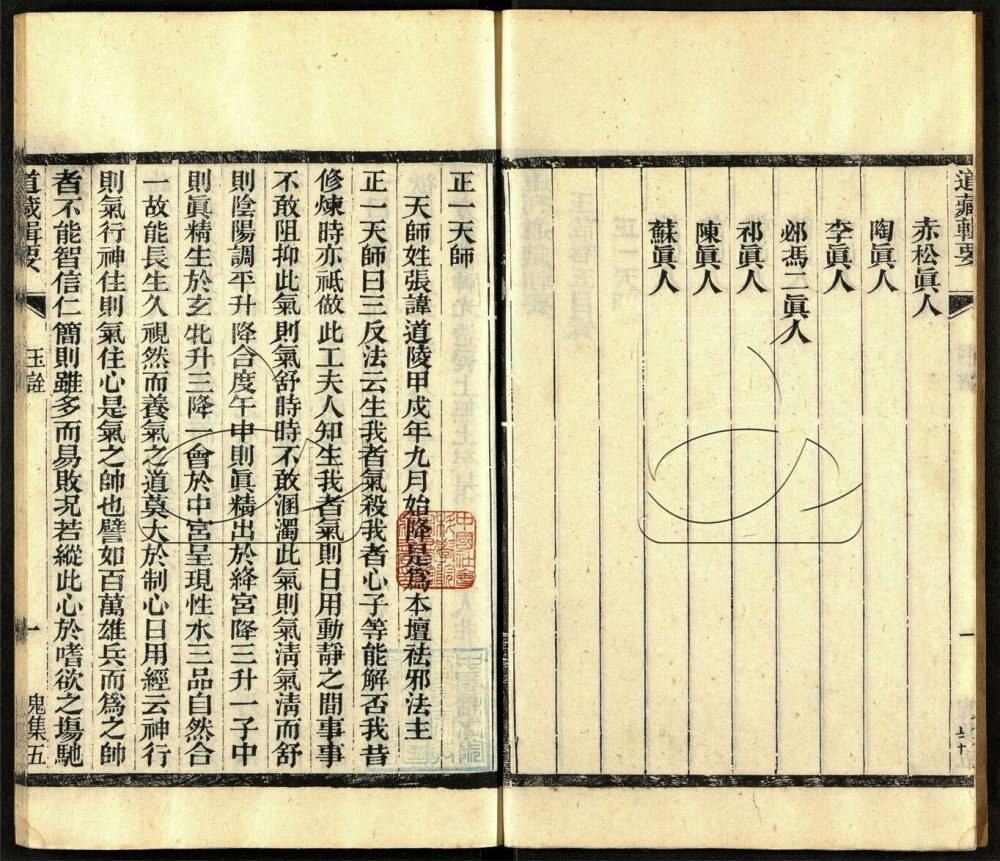 道藏輯要
赤松眞人
陶眞人
李眞人
邲馮二眞人
祁眞人
陳眞人
蘇眞人
一
正一天師
天師姓張諱道陵甲戌年九月始降是爲本壇祛邪法主
正一天師曰三反法云生我者氣殺我者心子等能解否我昔
修煉時亦祇做此工夫人知生我者氣則日用動靜之間事事
不敢阻抑此氣則氣舒時時不敢溷濁此氣則氣淸氣淸而舒
則陰陽調平升降合度午申則眞精出於絳宮降三升一子中
則眞精生於玄牝升三降一會於中宮呈現性水三品自然合
一故能長生久視然而養氣之道莫大於制心日用經云神行
則氣行神住則氣住心是氣之師也譬如百萬雄兵而爲之帥
者不能智信仁簡則雖多而易敗况若縱此心於嗜欲之塲馳
道藏輯要
玉詮
一
鬼集五
中國社會